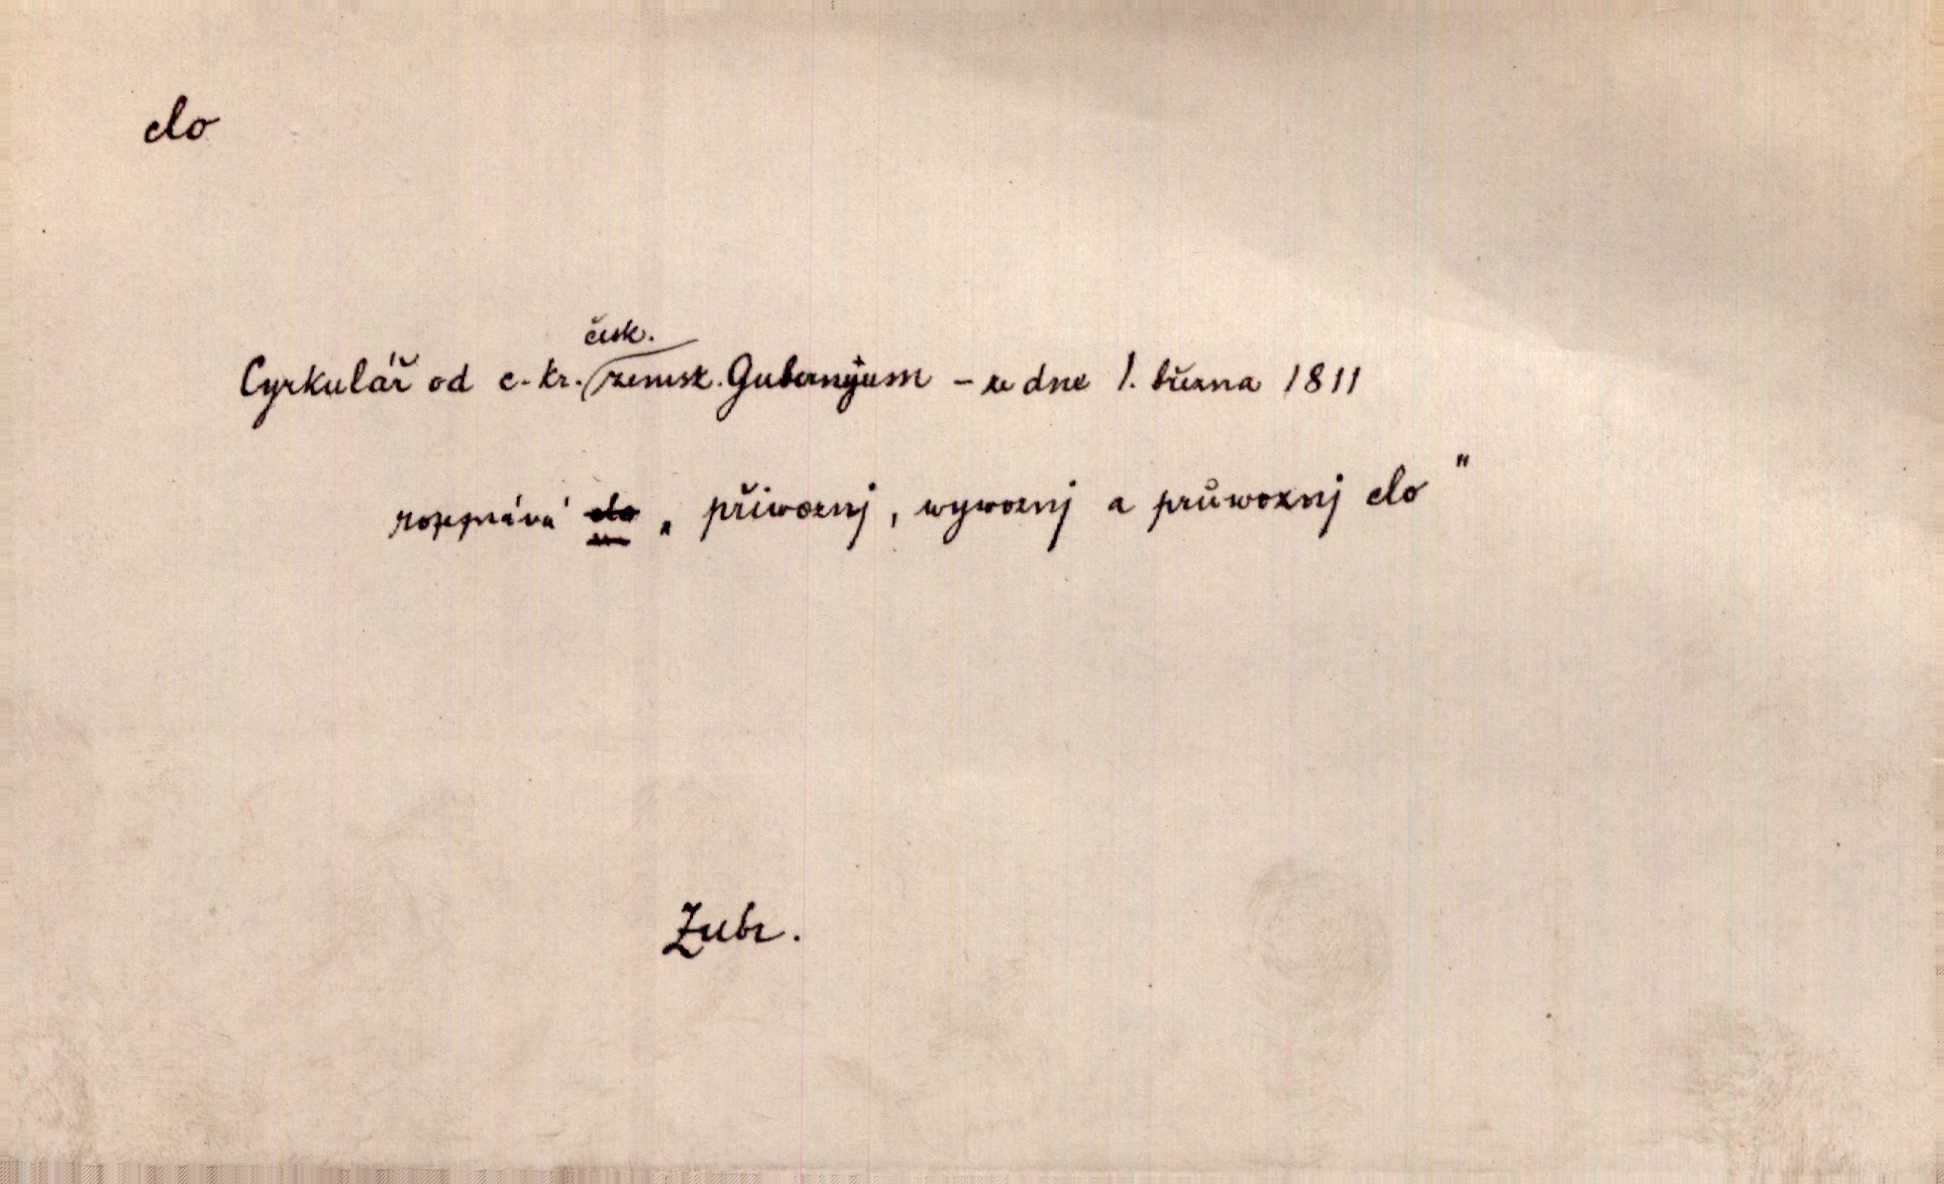 clo
Cyrkulář od c. kr. česk. zemsk. Gubernyum – ze dne 1. března 1811
rozeznává „přiwoznj, wywoznj a průwoznj clo"
Zubr.